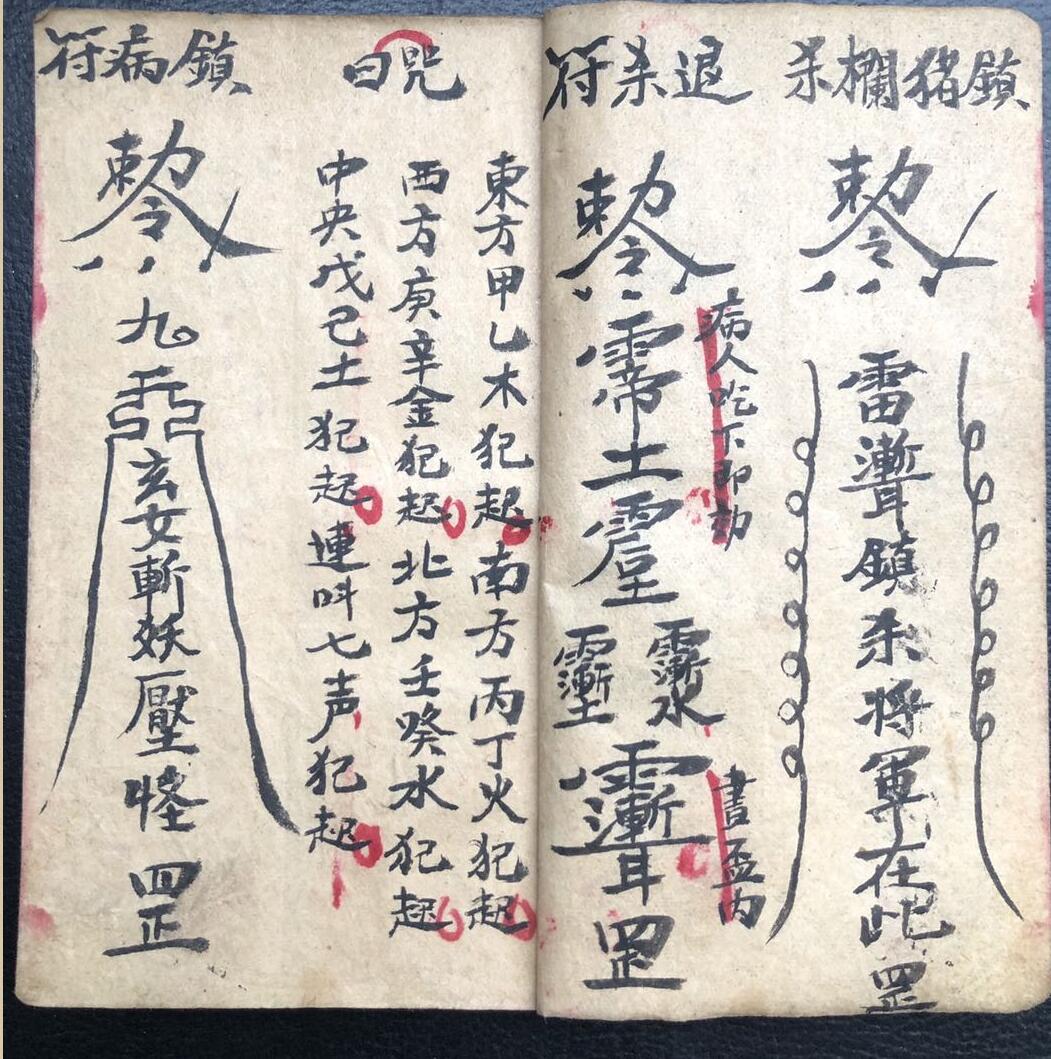 鎮猪欄杀
勅令
雷
鎮杀将軍在此罡
退杀符
病人吃下即効
勅令
土
書盃内
罡
咒曰
東方甲乙木犯起南方丙丁火犯起
西方庚辛金犯起北方壬癸水犯起
中央戊己土犯起連呌七声犯起
鎮病符
勅令
九
玄女斬妖壓怪罡